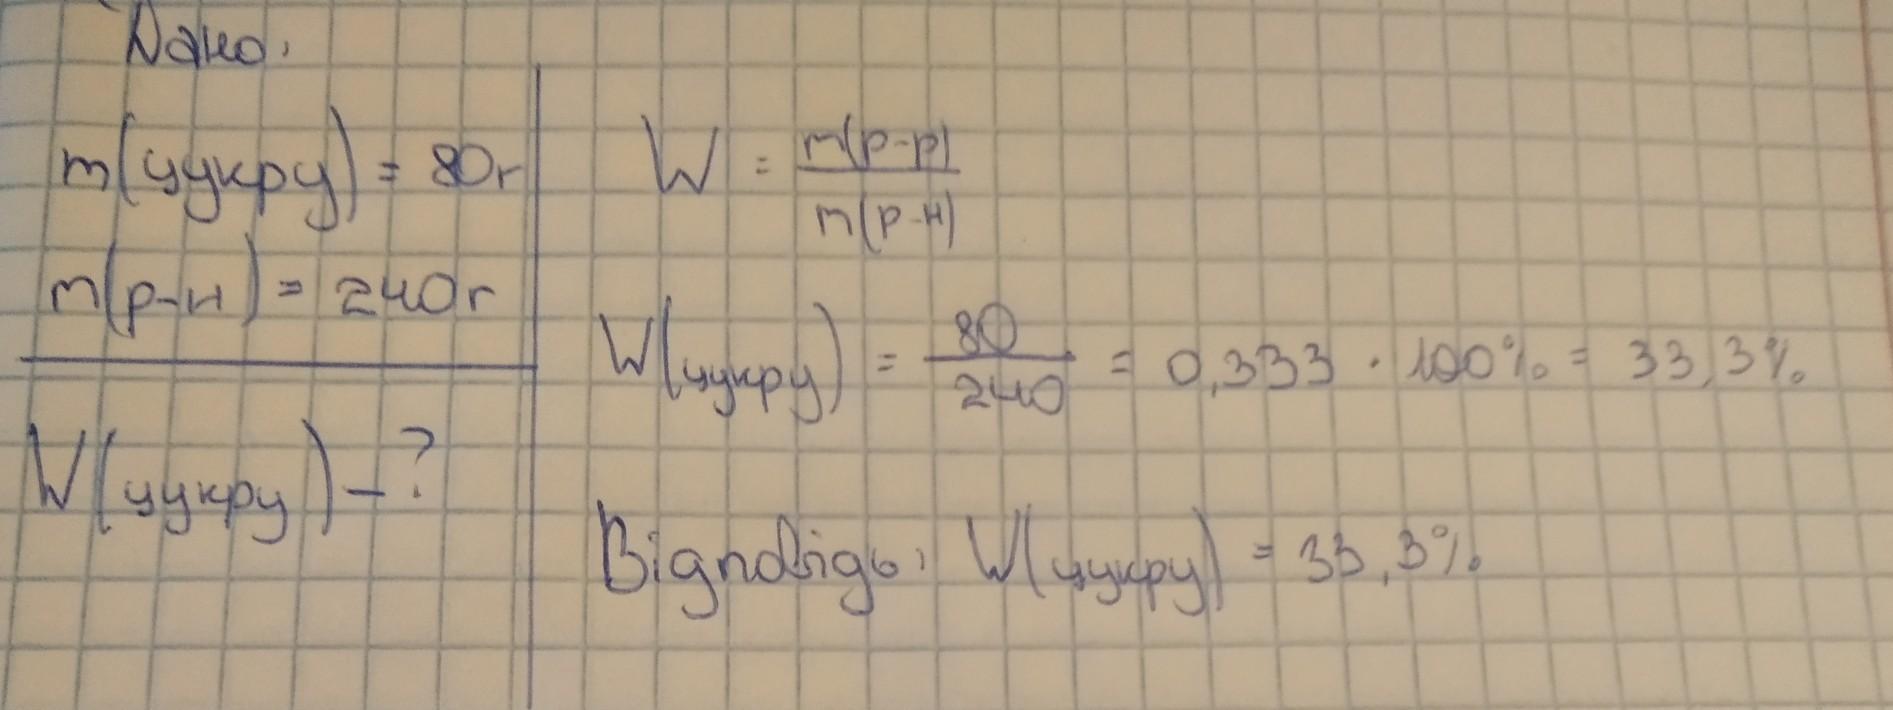 Дано:
m(цукру) = 80г
m(р-н) = 240г
W(цукру) - ?
W = m(р-р) / m(р-н)
W(цукру) = 80 / 240 = 0,333 · 100% = 33,3%
Відповідь: W(цукру) = 33,3%